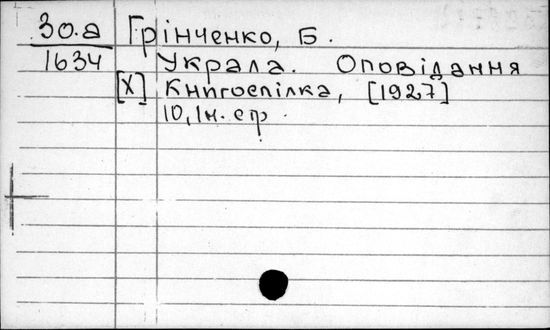 30.a Грінченко, Б.
1634 Украла. Оповідання
[X] Книгоспілка, [1927]
10,1н. стр.